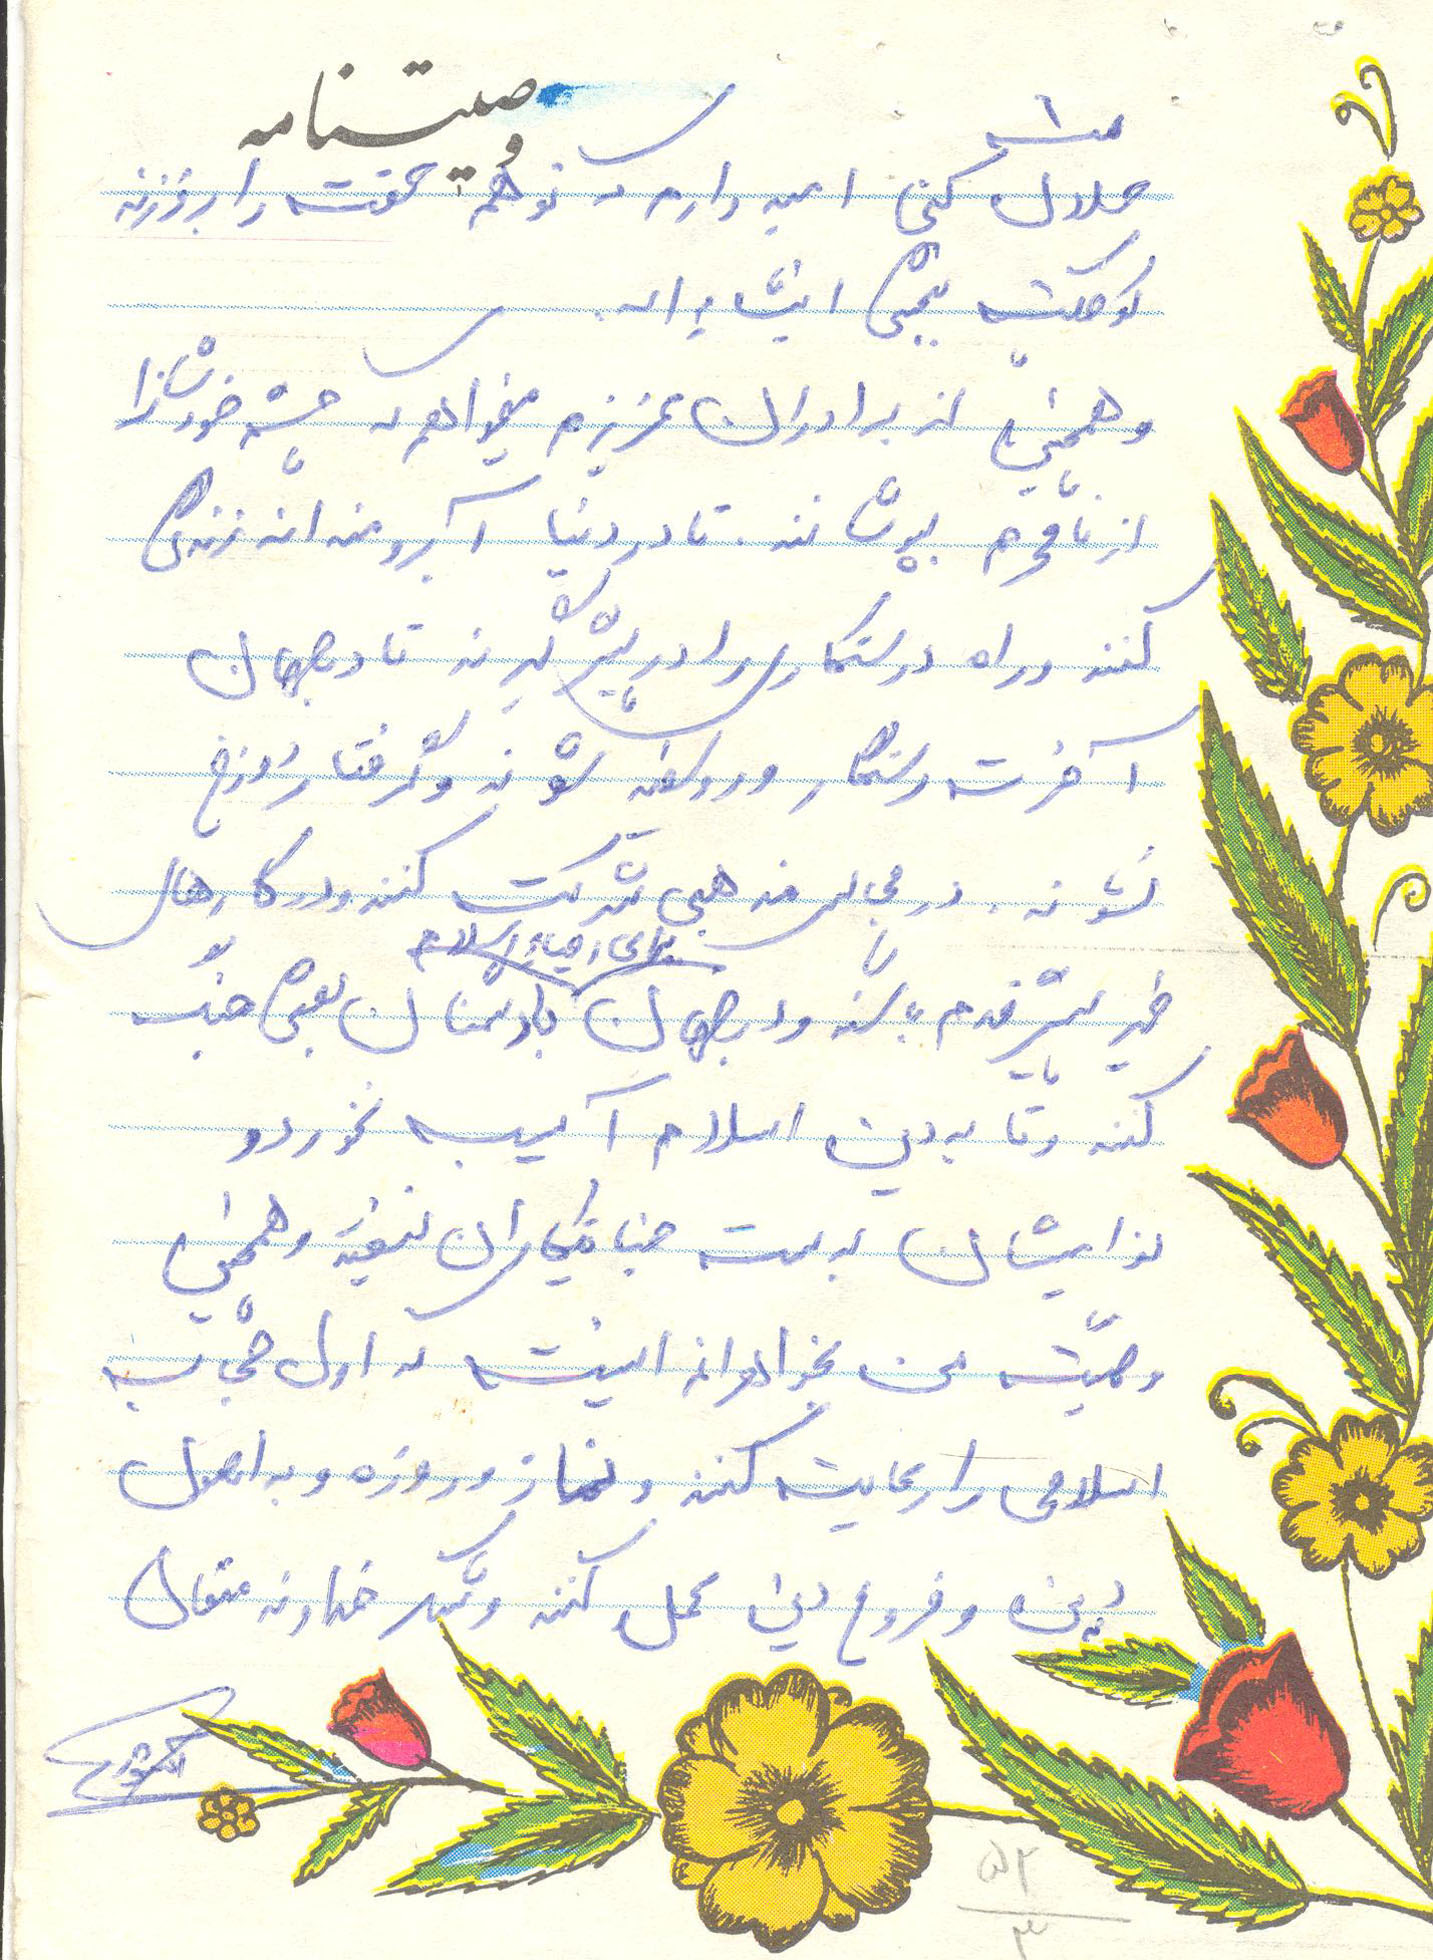 وصیتنامه
حلال کنی امیدوارم که تو هم حقت را بر فرزند
کوچکت ببخشی انشاءالله.
و همچنین از برادران عزیزم میخواهم که چشم خودشانرا
از نامحرم بپوشانند. تا در دنیا آبرومندانه زندگی
کنند و راه درستکاری را در پیش گیرند تا در جهان
آخرت رستگار و رو سفید شوند و گرفتار دوزخ
نشوند. در مجالس مذهبی شرکت کنند و در کارهای
خیر پیش قدم باشند و در جهان برای احیاء اسلام با دشمنان بعثی جنگ
کنند و تا به دین اسلام آسیب نخورد و
به دست جنایتکاران نیفتد و همچنین
وصیت من بخواهرانم اینست که اول حجاب
اسلامی را رعایت کنند و نماز و روزه و به اصول
دین و فروع دین عمل کنند و شکر خداوند متعال
۵۲
۳